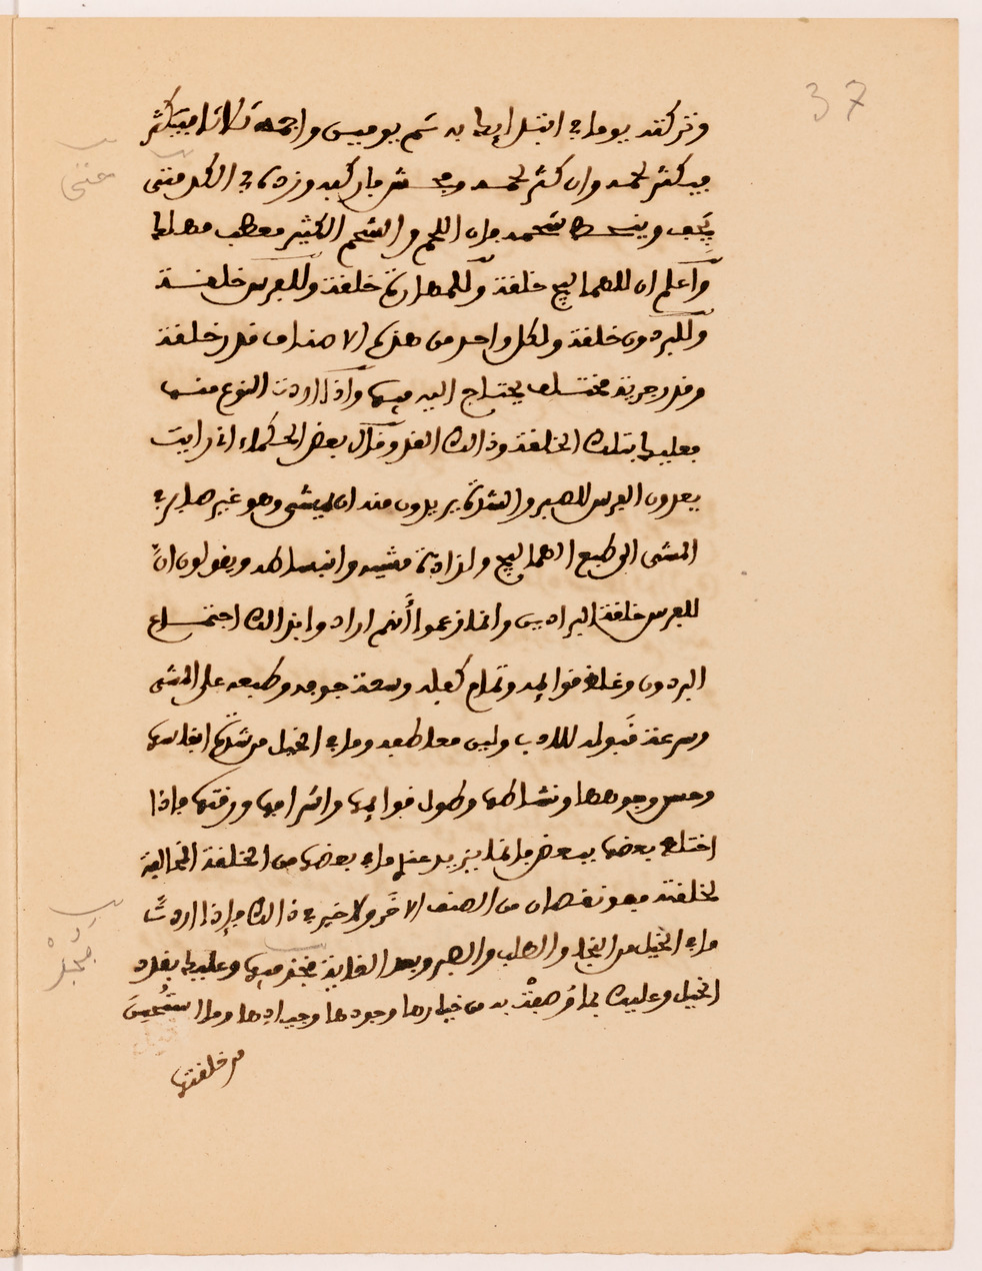 37
وتركته يوما في ابتل إبطا به ثم يوميى واجمه ثلاثا فيكثر
فيكثر لحمه وان كثر لحمه و شر فاركبه وزده في الكد متى
يجف وينـ شحمه فإن اللحم والشحم الكثير معطب مهلك
واعلم ان للهماليج خلقة وللمهارة خلقة وللفرس خلقـة
وللبرذون خلقة ولكل واحد من هذه الاصناف قدر خلقة
وقدر جرية مختلف يحتاج اليه فيها واذا اردت النوع منها
فعليك بتلك الخلقة وذالك القدر وقال بعض الحكماء اني رايت
يعدون الفرس للصبر والشدة يريدون منه ان يمشي وهو غير هار في
المشى الى طبع الهماليج ولزادة مشيه وانبساطه ويقولون ان
للفرس خلقة البراذين وانما زعموا أنهم ارادوا بذالك اجتماع
البرذون وغلظ قوايمه وتمام كفله وسعة جوفه وطبعه على المشى
وسرعة قبوله للادب ولين معاطفه وما في الخيل من شدة انفاسها
وحسن وجوهها ونشاطها وطول قوايمها واشرافها ورقتها فاذا
اختلط بعضها ببعض فانما يزيد عند ما في بعضها من الخلقة المخالفة
لخلقته فهو نقصان من الصنف الاخر ولا خير في ذالك فإذا اردت
ما في الخيل من النجا والطلب والصبر وبعد الغاية فخذ فيها وعليك بقلة
الخيل وعليك بما وصفت به من خيارها وجودها وجيادها وما استحسن
من خلقتها
معنى